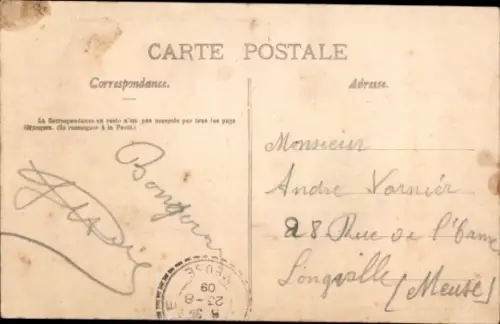 CARTE POSTALE
Correspondance.
Adresse.
La Correspondance au recto n'est pas acceptée par tous les pays
étrangers. (Se renseigner à la Poste).
Bonjour
Monsieur
André Varnier
28 Rue de
Longeville
(Meuse)
MEUSE
23-8
09